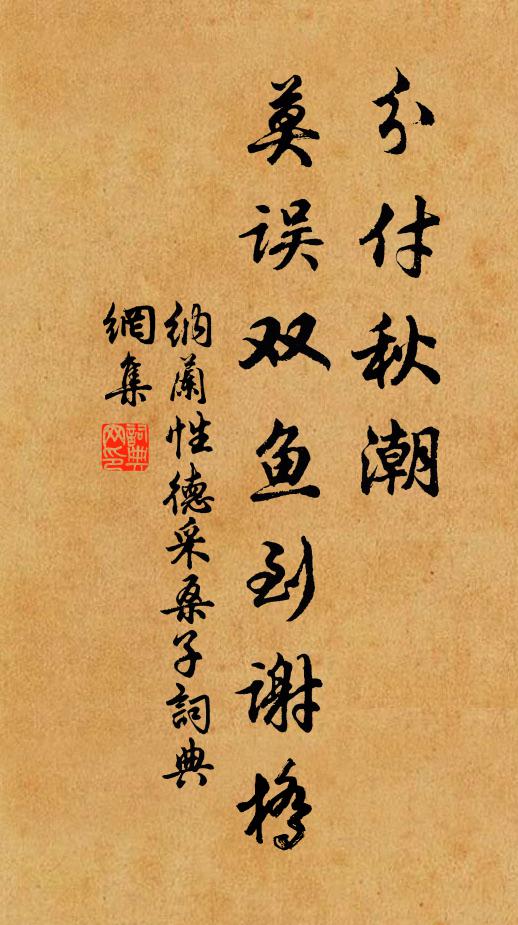 分付秋潮
莫误双鱼到谢橋
纳蘭性德采桑子詞典
網集
詞典
网印